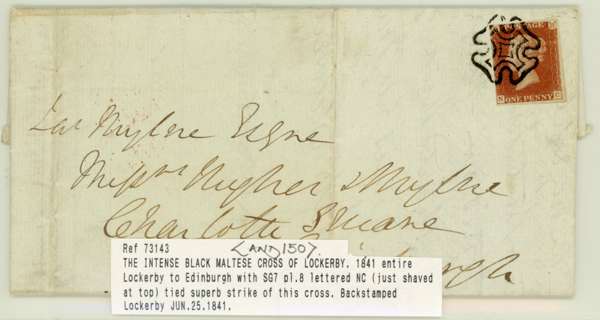 POSTAGE
N ONE PENNY C
Jas Mylne Esqre
Messrs Hugher & Mylne
Charlotte Square
Edinburgh
Ref 73143 <AND 150>
THE INTENSE BLACK MALTESE CROSS OF LOCKERBY. 1841 entire
Lockerby to Edinburgh with SG7 pl.8 lettered NC (just shaved
at top) tied superb strike of this cross. Backstamped
Lockerby JUN.25.1841.